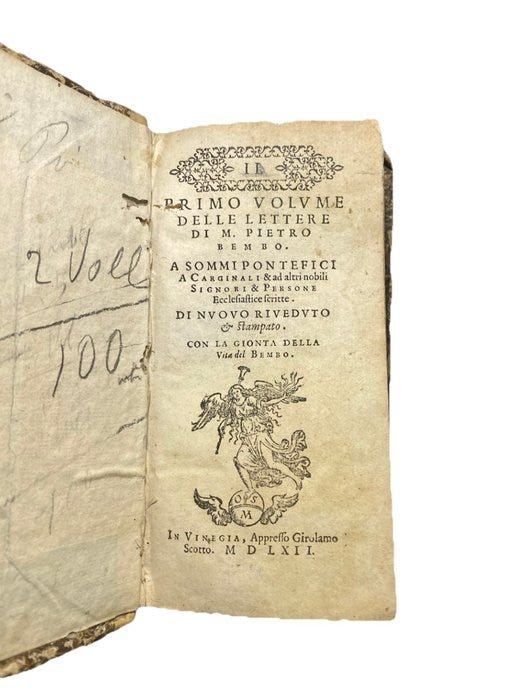 IL
PRIMO VOLVME
DELLE LETTERE
DI M. PIETRO
BEMBO.
A SOMMI PONTEFICI
A CARGINALI & ad altri nobili
SIGNORI & PERSONE
Ecclesiastice scritte.
DI NVOVO RIVEDVTO
& stampato.
CON LA GIONTA DELLA
Vita del BEMBO.
O S
M
IN VINEGIA, Appresso Girolamo
Scotto. M D LXII.
2 Voll
100